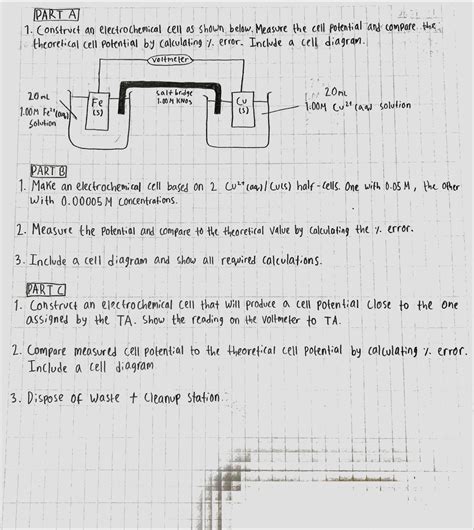 PART A
1. Construct an electrochemical cell as shown below. Measure the cell potential and compare the
theoretical cell potential by calculating % error. Include a cell diagram.
voltmeter
salt bridge
1.00M KNO3
20mL
1.00M Fe²⁺(aq)
solution
Fe
(s)
Cu
(s)
20mL
1.00M Cu²⁺(aq) solution
PART B
1. Make an electrochemical cell based on 2 Cu²⁺(aq)/Cu(s) half-cells. One with 0.05 M, the other
with 0.00005 M concentrations.
2. Measure the potential and compare to the theoretical value by calculating the % error.
3. Include a cell diagram and show all required calculations.
PART C
1. Construct an electrochemical cell that will produce a cell potential close to the one
assigned by the TA. Show the reading on the voltmeter to TA.
2. Compare measured cell potential to the theoretical cell potential by calculating % error.
Include a cell diagram
3. Dispose of waste + cleanup station.